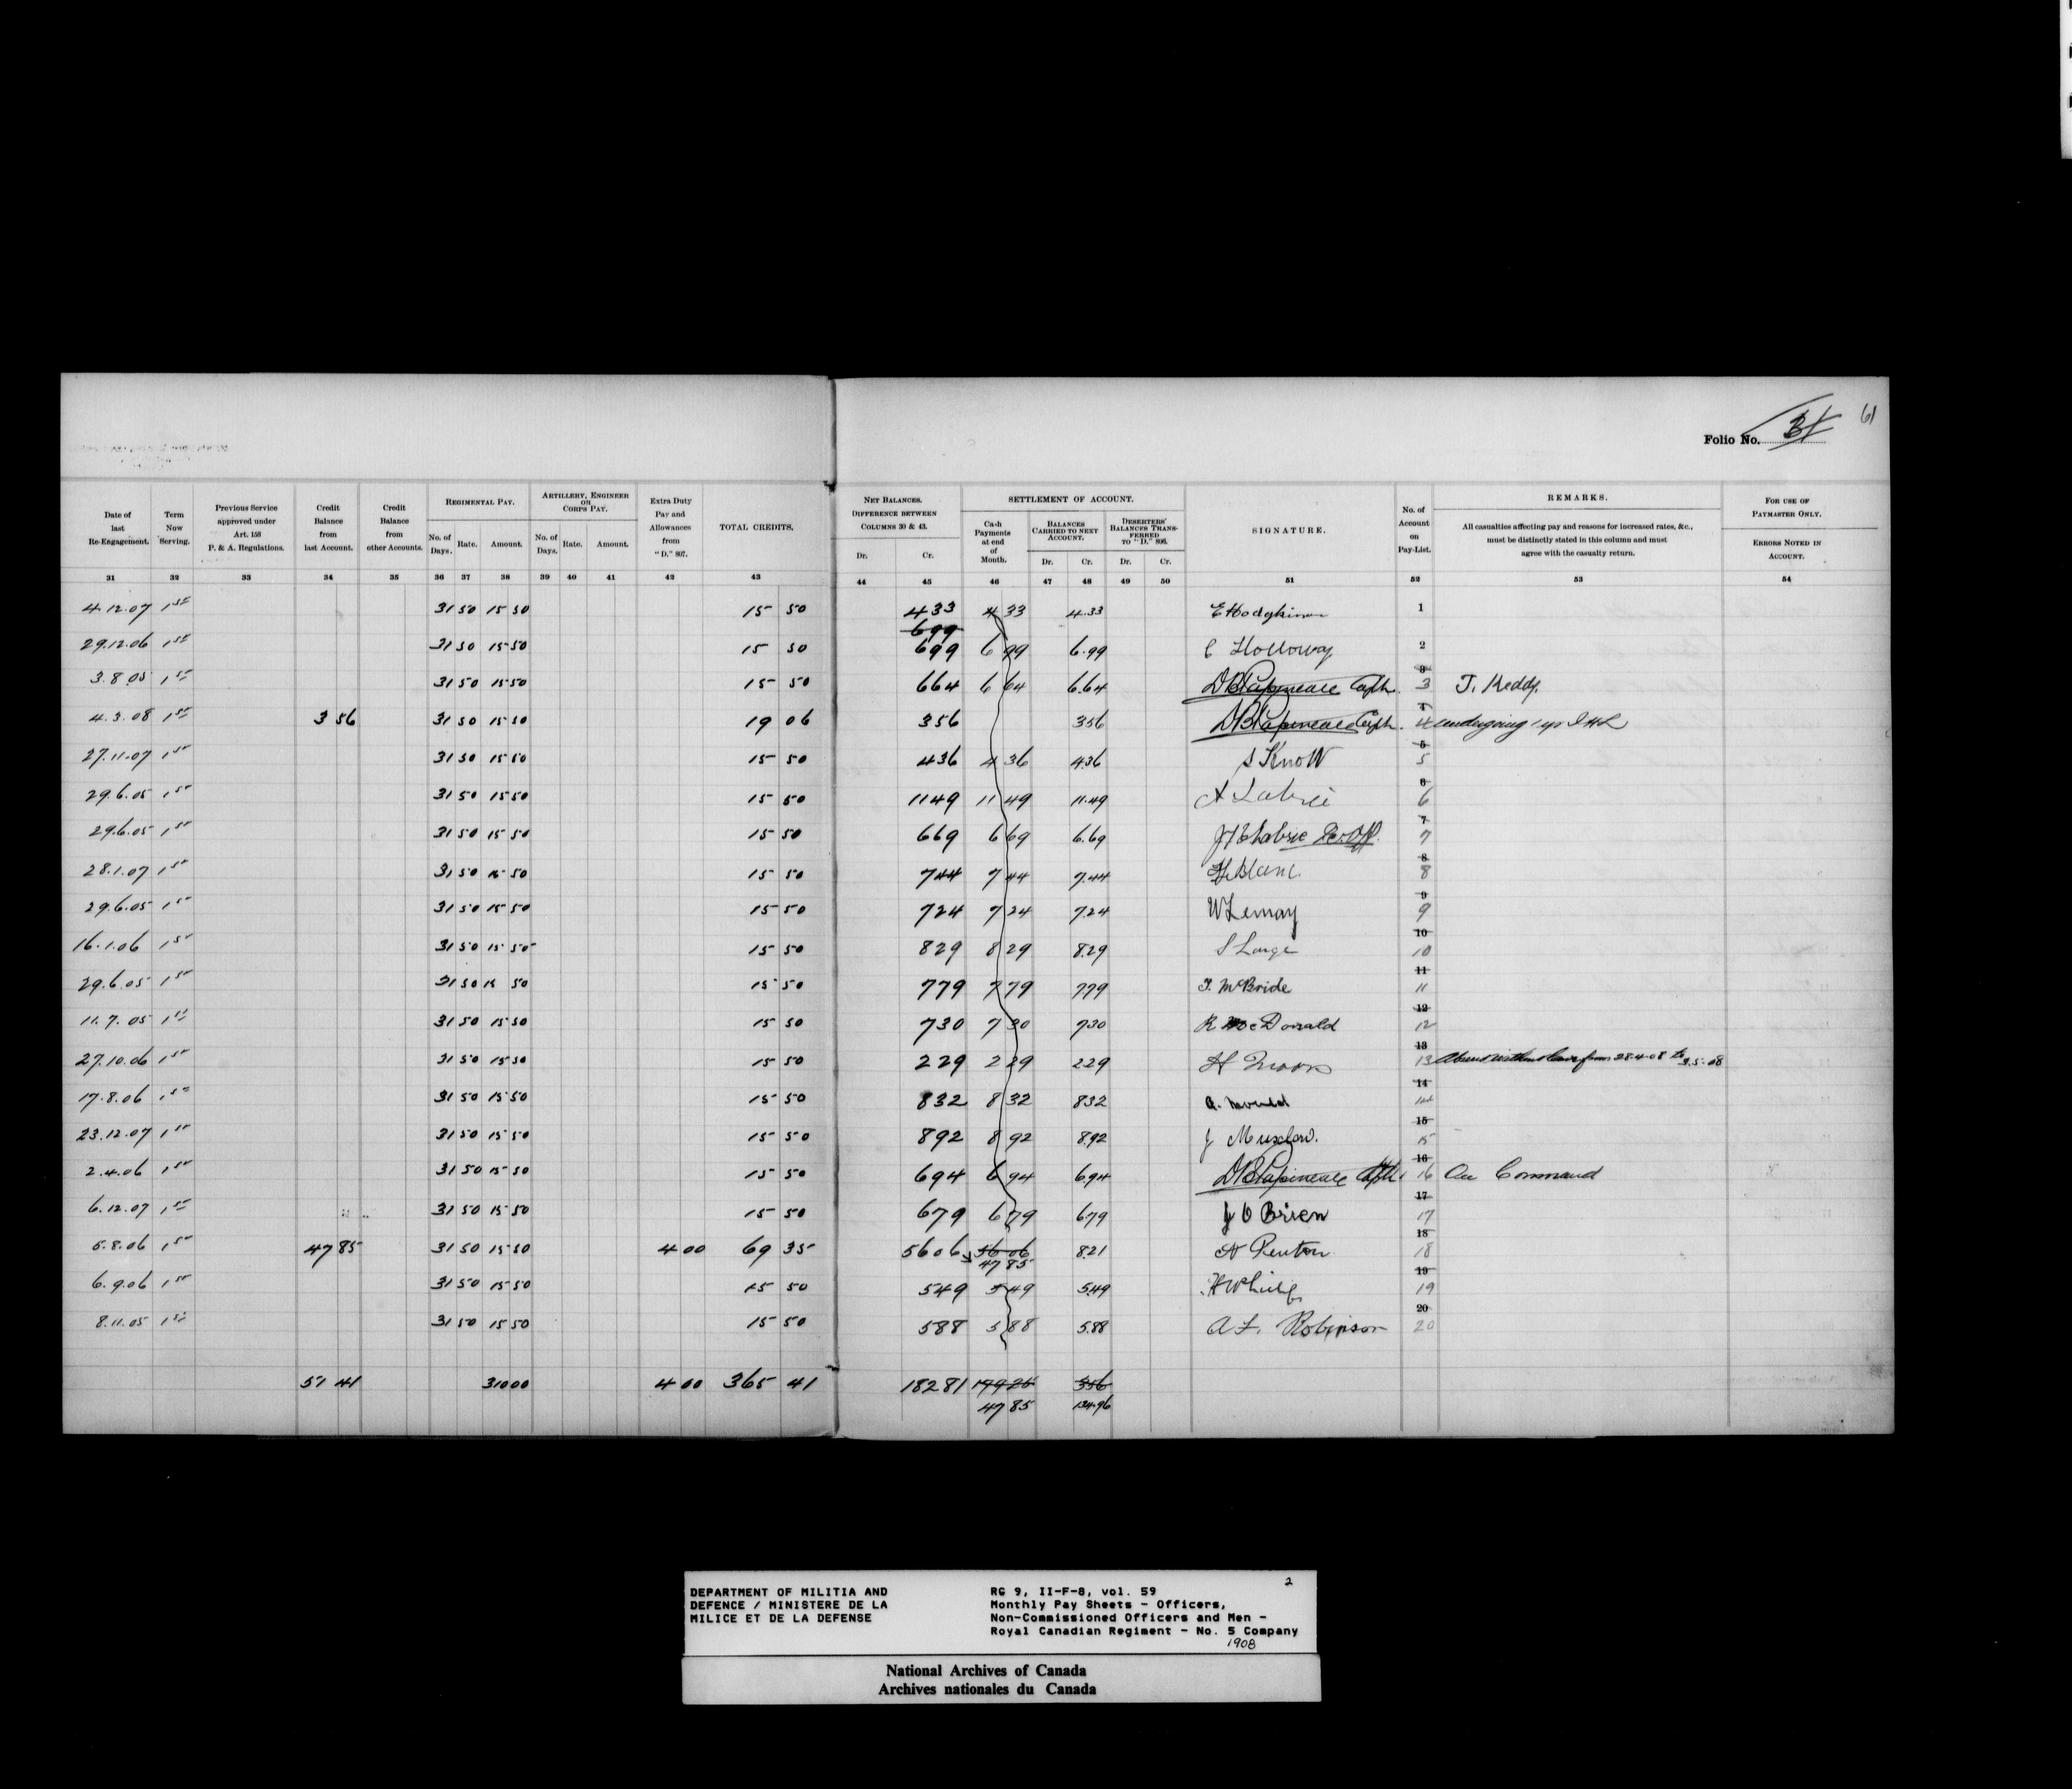 61
Folio No.
Date of last Re-Engagement.
Term Now Serving.
Previous Service approved under Art. 158 P. & A. Regulations.
Credit Balance from last Account.
Credit Balance from other Accounts.
REGIMENTAL PAY.
No. of Days. Rate. Amount.
ARTILLERY, ENGINEER OR CORPS PAY.
No. of Days. Rate. Amount.
Extra Duty Pay and Allowances from "D." 807.
TOTAL CREDITS.
NET BALANCES. DIFFERENCE BETWEEN COLUMNS 30 & 43.
Dr. Cr.
SETTLEMENT OF ACCOUNT.
Cash Payments at end of Month.
BALANCES CARRIED TO NEXT ACCOUNT.
Dr. Cr.
DESERTERS' BALANCES TRANSFERRED TO "D." 806.
Dr. Cr.
SIGNATURE.
No. of Account on Pay-List.
REMARKS.
All casualties affecting pay and reasons for increased rates, &c., must be distinctly stated in this column and must agree with the casualty return.
FOR USE OF PAYMASTER ONLY.
ERRORS NOTED IN ACCOUNT.
31 32 33 34 35 36 37 38 39 40 41 42 43 44 45 46 47 48 49 50 51 52 53 54
4.12.07 1st 31 50 15 50 15 50 433 4 33 4.33 E Hodgkinson 1
699
29.12.06 1st 31 50 15 50 15 50 699 6 99 6.99 C Holloway 2
3.8.05 1st 31 50 15 50 15 50 664 6 64 6.64 D B Papineau Capt. 3 3 T. Keddy.
4.3.08 1st 3 56 31 50 15 50 19 06 356 356 D B Papineau Capt. 4 4 undergoing
27.11.07 1st 31 50 15 50 15 50 436 4 36 4.36 S Knott 5 5
29.6.05 1st 31 50 15 50 15 50 1149 11 49 11.49 A Labrie 6 6
29.6.05 1st 31 50 15 50 15 50 669 6 69 6.69 7 7
28.1.07 1st 31 50 15 50 15 50 744 7 44 7.44 8 8
29.6.05 1st 31 50 15 50 15 50 724 7 24 7.24 W Lemay 9 9
16.1.06 1st 31 50 15 50 15 50 829 8 29 8.29 S Large 10 10
29.6.05 1st 31 50 15 50 15 50 779 7 79 779 T. McBride 11 11
11.7.05 1st 31 50 15 50 15 50 730 7 30 730 R McDonald 12 12
27.10.06 1st 31 50 15 50 15 50 229 2 29 229 H Moors 13 13 Absent without leave from 28.4.08 to 3.5.08
17.8.06 1st 31 50 15 50 15 50 832 8 32 832 14 14
23.12.07 1st 31 50 15 50 15 50 892 8 92 8.92 J 15 15
2.4.06 1st 31 50 15 50 15 50 694 6 94 694 D B Papineau Capt. 16 16 On Command
6.12.07 1st 31 50 15 50 15 50 679 6 79 679 J O Brien 17 17
5.8.06 1st 47 85 31 50 15 50 4 00 69 35 5606 56 06 8.21 Penton 18 18
47 85
6.9.06 1st 31 50 15 50 15 50 549 5 49 5.49 19 19
8.11.05 1st 31 50 15 50 15 50 588 5 88 5.88 A F. Robinson 20 20
51 41 310 00 4 00 365 41 182 81 179 25 356
47 85 134.96
DEPARTMENT OF MILITIA AND
DEFENCE / MINISTERE DE LA
MILICE ET DE LA DEFENSE
2
RG 9, II-F-8, vol. 59
Monthly Pay Sheets - Officers,
Non-Commissioned Officers and Men -
Royal Canadian Regiment - No. 5 Company
1908
National Archives of Canada
Archives nationales du Canada